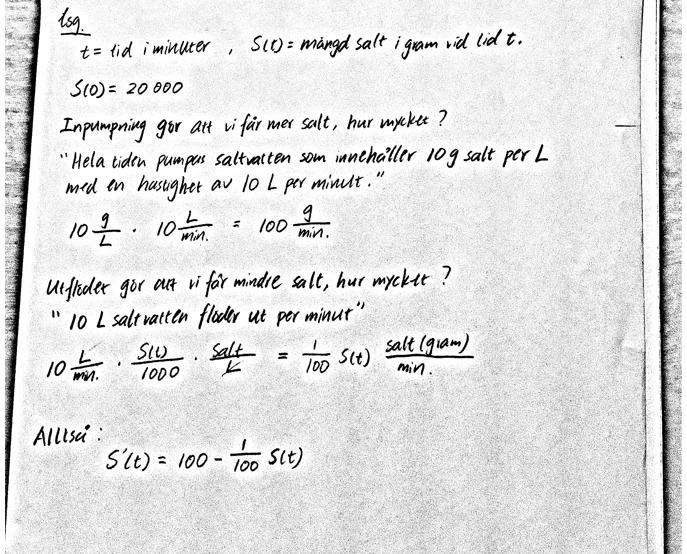 lsg.
t = tid i minuter , S(t) = mängd salt i gram vid tid t.
S(0) = 20 000
Inpumpning gör att vi får mer salt, hur mycket ?
"Hela tiden pumpas saltvatten som innehåller 10 g salt per L
med en hastighet av 10 L per minut."
10 g/L · 10 L/min. = 100 g/min.
Utflödet gör att vi får mindre salt, hur mycket ?
" 10 L saltvatten flödar ut per minut"
10 L/min. · S(t)/1000 · salt/L = 1/100 S(t) salt (gram)/min.
Alltså :
S'(t) = 100 - 1/100 S(t)